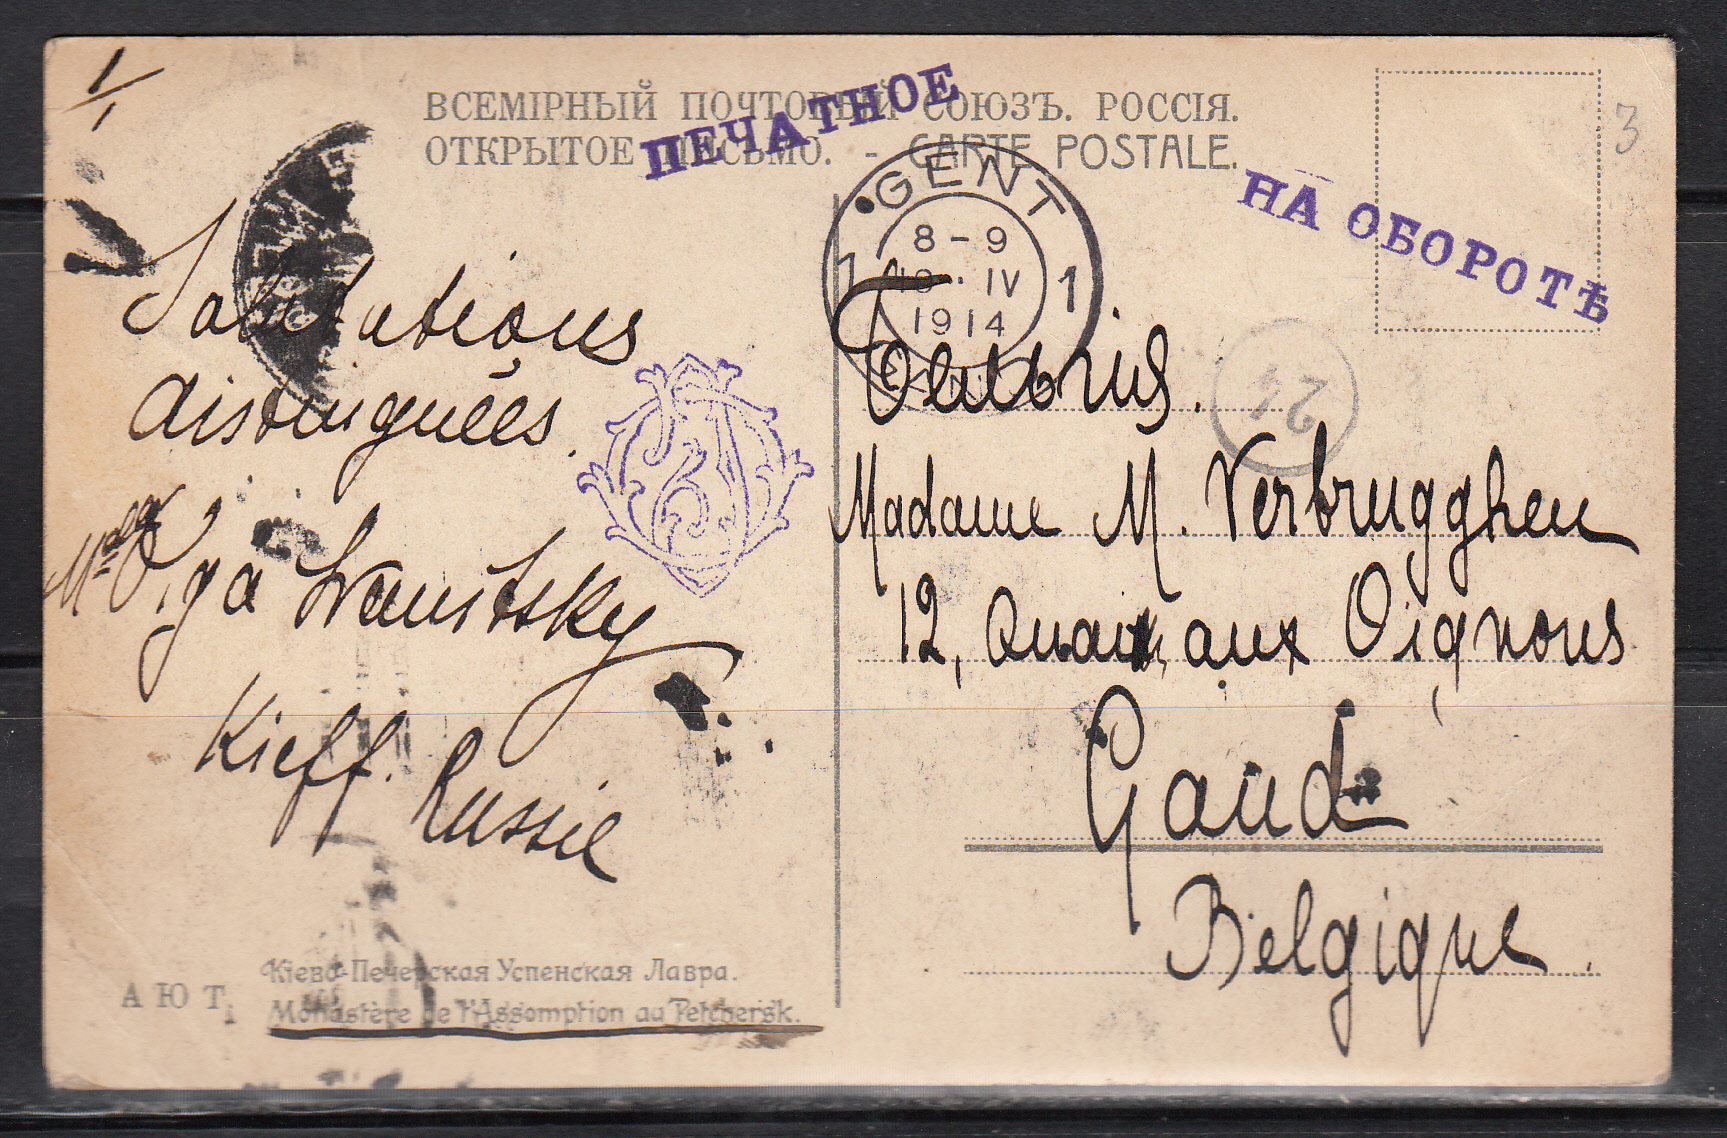 1/1
ВСЕМIРНЫЙ ПОЧТОВЫЙ СОЮЗЪ. РОССIЯ.
ОТКРЫТОЕ ПИСЬМО. - CARTE POSTALE.
ПЕЧАТНОЕ
НА ОБОРОТѢ
3
GENT
1 1
8-9
IV
1914
24
Salutations
distinguées.
Olga Iwanitsky
Kieff. Russie
Madame M. Verbrugghen
12, Quai aux Oignons
Gand
Belgique.
Кiево-Печерская Успенская Лавра.
А Ю Т.
Monastère de l'Assomption au Petchersk.